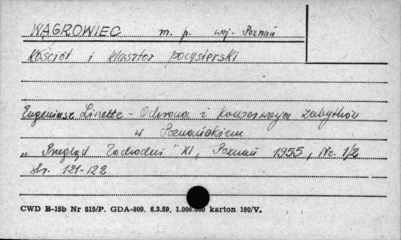 WĄGROWIEC m. p. woj. Poznań
Kościół i klasztor pocysterski
Eugeniusz Linette - Ochrona i konserwacja zabytków
w Poznańskiem
„Przegląd Zachodni" XI, Poznań 1955, Nr. 1/2
str. 121-122
CWD B-15b Nr 515/P. GDA-809. 6.3.59. 1.000.000 karton 180/V.